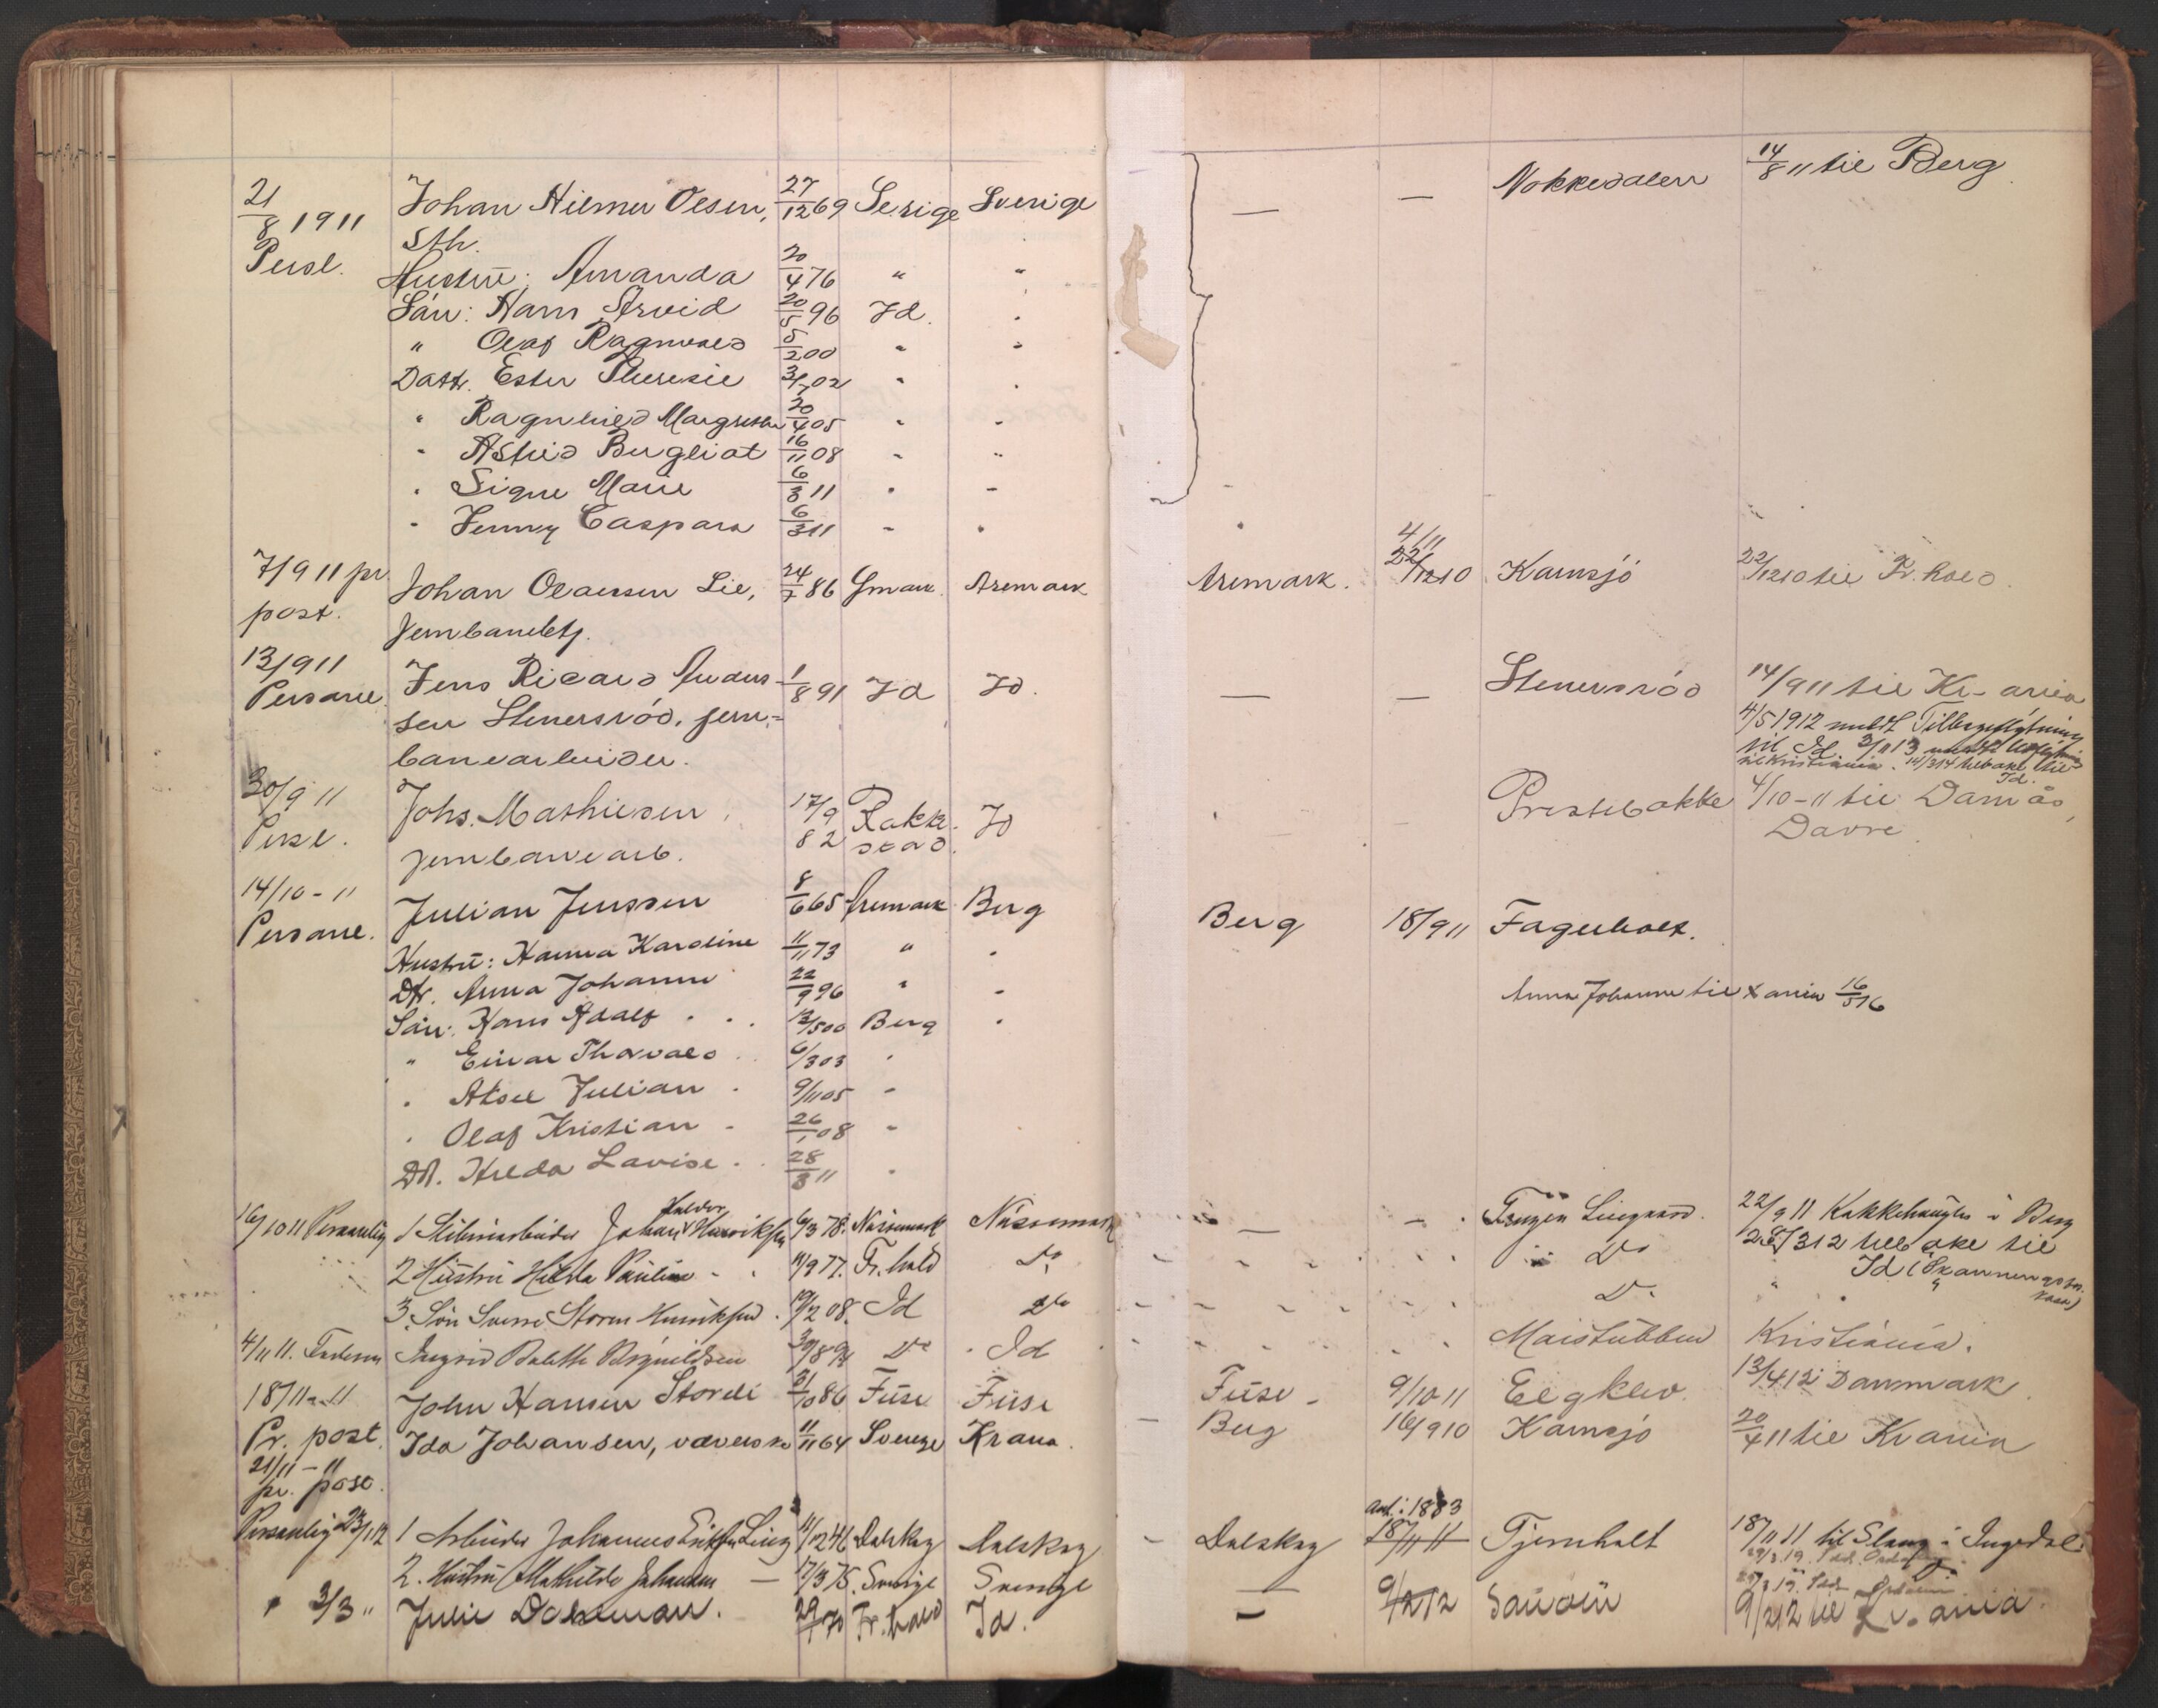 21/8 1911 Johan Hilmer Olsen, 27/12 69 Sverige Sverige — — Nokkedalen 14/8 11 til Berg
Persl. Sth.
Hustru: Amanda 20/4 76 " "
Sön: Hans Arvid 20/5 96 Id. "
" Olaf Ragnvald 5/2 00 " "
Dattr. Ester Theresie 3/7 02 " "
" Ragnhild Margrethe 20/4 05 " "
" Astrid Bergliot 16/11 08 " "
" Signe Marie 6/3 11 " "
" Jenny Caspara 6/3 11 " "
4/11
7/9 11 pr. post. Johan Olausen Lie, 24/7 86 Ømark Aremark Aremark. 22/12 10 Kornsjö 22/12 10 til Fr.hald.
jernbanebetj.
13/9 11 Jens Ricard Anders- 1/8 91 Id Id. — — Stenersröd 14/9 11 til Kr-ania
Personl. sen Stenersröd, jern- 4/5 1912 meldt Tilbageflytning
banearbeider. til Id 3/11 13 meldt
til Kristiania. 14/3 14 tilbake til Id.
30/9 11 Johs. Mathiesen, 17/9 82 Rakkestad. Id Prestebakke 4/10-11 til Damås,
Persl. jernbanearb. Dovre.
14/10-11 Julian Jenssen 8/6 65 Aremark Berg Berg 18/9 11 Fagerholt.
Personl.
Hustru: Hanna Karoline 11/11 73 " "
Dtr. Anna Johanne 22/9 96 " " Anna Johanne til X ania 16/5 16
Sön: Hans Adolf 13/5 00 Berg "
" Einar Thorvald 6/3 03 "
" Aksel Julian 9/11 05 "
" Olaf Kristian 26/1 08 "
Dtr. Hilda Lovise 28/3 11 "
16/10 11 Personlig 1 Stenarbeider Johan Halvor Henriksen 6/3 78. Näsemark Näsemark — — Lingaard. 22/9 11 Kakkehaugen i Berg
2 Hustru Hilda Pauline 11/9 77. Fr.hald Do Do 28/3 12 tilbake til
3. Sön Sverre Storm Henriksen 19/2 08. Id Do Do Id
4/11 11. Faderen Ingrid Bolette Berguldsen 30/8 94 Do Id Maistubben Kristiania.
18/11-11 John Hansen Storeli 31/10 86 Fuse Fuse Fuse 9/10 11 Elgklev 13/4 12 Danmark
Pr. post. Ida Johansen, væverske 11/11 64 Sverige Krana. Berg 16/9 10 Kornsjö 20/4 11 til Krania
21/11-11
pr. post.
ant: 1883
Personlig 23/1 12 1 Arbeider Johannes Eriksen Lund 11/12 46 Dalskog Dalskog Dalskog 18/11 11 Tjernholt 18/11 11 til Slang i Ingedal
2. Hustru Mathilde Johansen — 17/3 75. Sverige Sverige —
" 2/3 " Julie Dokeman. 29/1 70 Fr.hald Id. — 9/2 12 9/2 12 til Kr.ania.